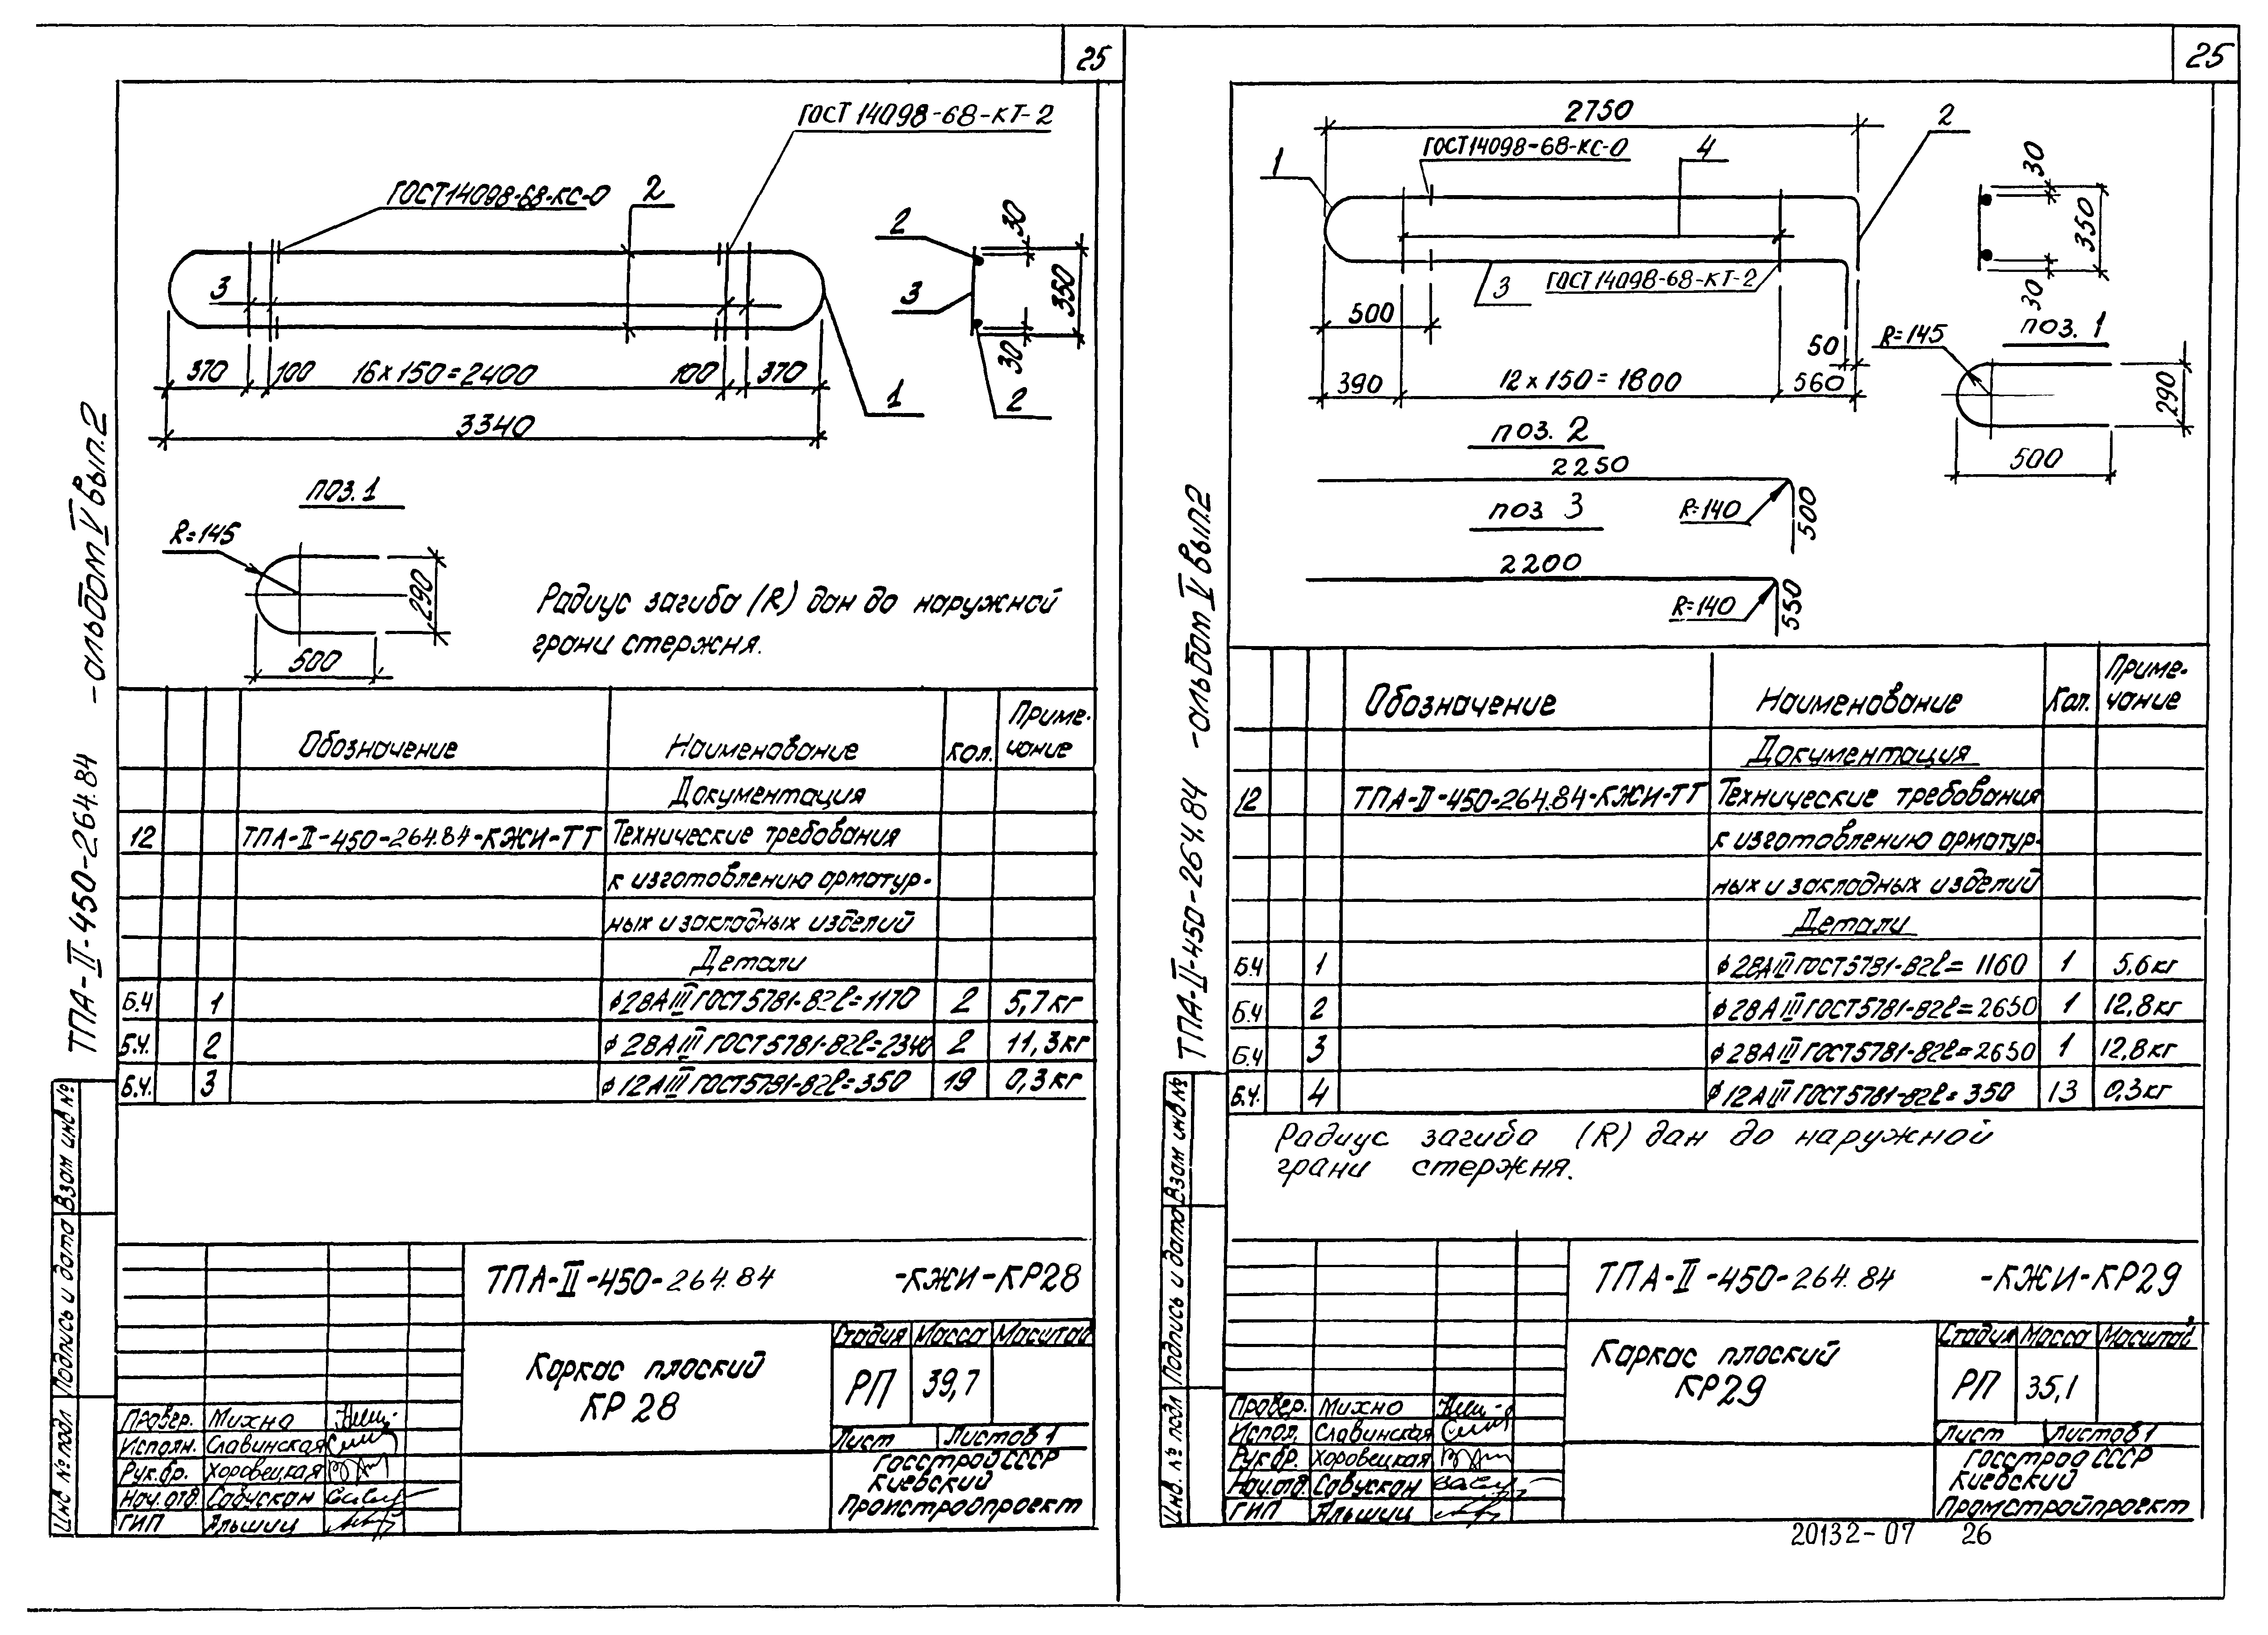 25
ГОСТ 14098-68-КТ-2
ГОСТ14098-68-КС-О
2
3
370
100
16×150=2400
100
370
3340
1
2
3
2
30
350
30
поз.1
R=145
290
500
Радиус загиба (R) дан до наружной
грани стержня.
ТПА-II-450-264.84 -альбом V вып.2
Обозначение Наименование Кол. Приме-
чание
Документация
12 ТПА-II-450-264.84-КЖИ-ТТ Технические требования
к изготовлению арматур-
ных и закладных изделий
Детали
Б.Ч 1 ϕ28АIII ГОСТ5781-82 ℓ=1170 2 5,7кг
Б.Ч. 2 ϕ28АIII ГОСТ5781-82 ℓ=2340 2 11,3кг
Б.Ч. 3 ϕ12АIII ГОСТ5781-82 ℓ=350 19 0,3кг
Инв № подл Подпись и дата Взам инв №
ТПА-II-450-264.84 -КЖИ-КР28
Каркас плоский
КР 28
Стадия Масса Масштаб
РП 39,7
Лист Листов 1
Госстрой СССР
Киевский
Промстройпроект
Провер. Михно
Исполн. Славинская
Рук.бр. Хоровецкая
Нач.отд. Савускан
ГИП Альшиц
25
2750
ГОСТ14098-68-КС-О
4
2
1
3
ГОСТ14098-68-КТ-2
500
50
390
12×150=1800
560
30
350
30
поз. 1
R=145
290
500
поз. 2
2250
R=140
500
поз 3
2200
R=140
550
ТПА-II-450-264.84 -альбом V вып.2
Обозначение Наименование Кол. Приме-
чание
Документация
12 ТПА-II-450-264.84-КЖИ-ТТ Технические требования
к изготовлению арматур-
ных и закладных изделий
Детали
Б.Ч 1 ϕ28АIII ГОСТ5781-82 ℓ=1160 1 5,6кг
Б.Ч 2 ϕ28АIII ГОСТ5781-82 ℓ=2650 1 12,8кг
Б.Ч 3 ϕ28АIII ГОСТ5781-82 ℓ=2650 1 12,8кг
Б.Ч. 4 ϕ12АIII ГОСТ5781-82 ℓ=350 13 0,3кг
Радиус загиба (R) дан до наружной
грани стержня.
Инв. № подл Подпись и дата Взам инв №
ТПА-II-450-264.84 -КЖИ-КР29
Каркас плоский
КР29
Стадия Масса Масштаб
РП 35,1
Лист Листов 1
Госстрой СССР
Киевский
Промстройпроект
Провер. Михно
Испол. Славинская
Рук.бр. Хоровецкая
Нач.отд. Савускан
ГИП Альшиц
20132-07 26